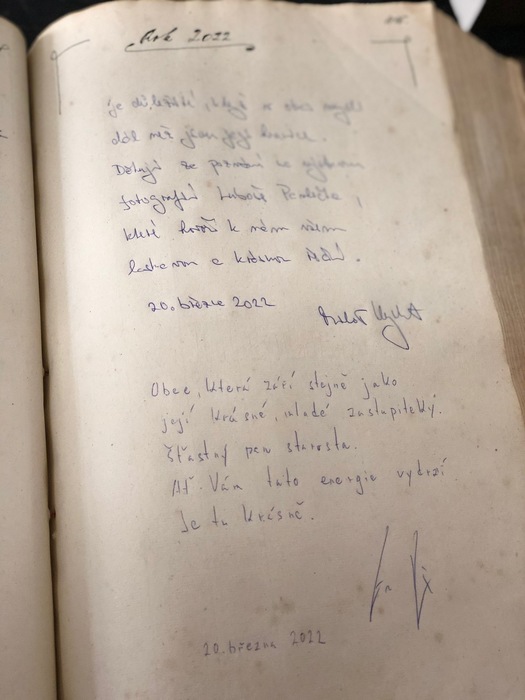 Rok 2022
je důležité, když se obec
dál než jsou její hranice.
Děkuji za pozvání na výstavu
fotografií Luboše Pavlíčka,
které hovoří k nám všem
laskavou a krásnou řečí.
20. března 2022
Obec, která září stejně jako
její krásné, mladé zastupitelky.
Šťastný pan starosta.
Ať Vám tato energie vydrží
Je tu krásně.
20. března 2022